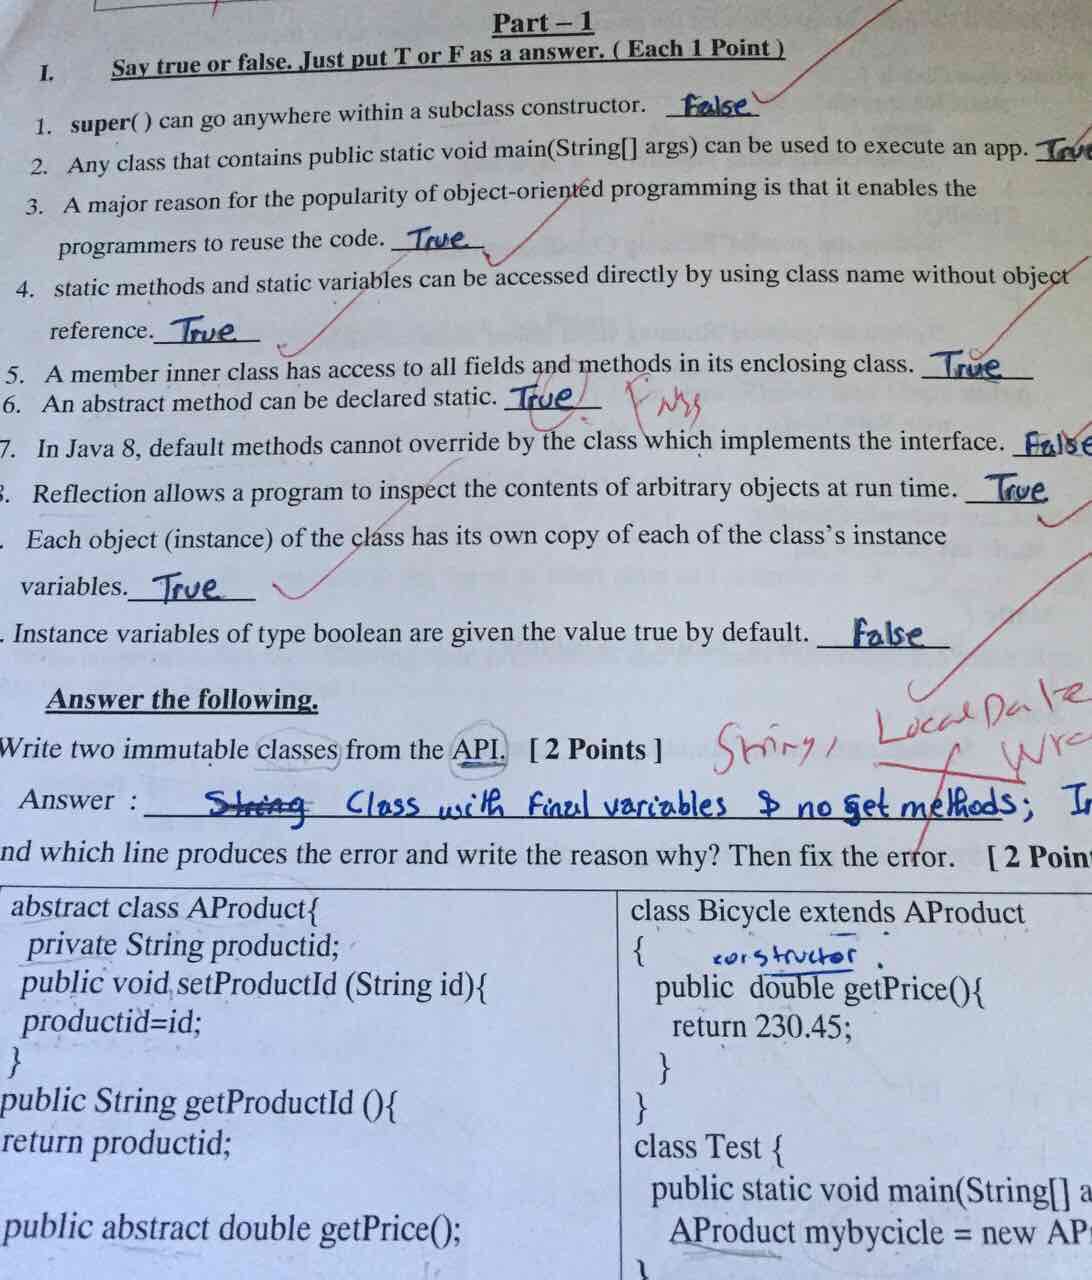 Part – 1
I. Say true or false. Just put T or F as a answer. ( Each 1 Point )
1. super( ) can go anywhere within a subclass constructor. False
2. Any class that contains public static void main(String[] args) can be used to execute an app. True
3. A major reason for the popularity of object-oriented programming is that it enables the
programmers to reuse the code. True
4. static methods and static variables can be accessed directly by using class name without object
reference. True
5. A member inner class has access to all fields and methods in its enclosing class. True
6. An abstract method can be declared static. True F
7. In Java 8, default methods cannot override by the class which implements the interface. False
. Reflection allows a program to inspect the contents of arbitrary objects at run time. True
. Each object (instance) of the class has its own copy of each of the class's instance
variables. True
. Instance variables of type boolean are given the value true by default. False
Answer the following.
Write two immutable classes from the API. [ 2 Points ] String, LocalDate
Wra
Answer : String Class with final variables & no set methods; In
nd which line produces the error and write the reason why? Then fix the error. [ 2 Poin
abstract class AProduct{
private String productid;
public void setProductId (String id){
productid=id;
}
public String getProductId (){
return productid;
public abstract double getPrice();
class Bicycle extends AProduct
{ constructor .
public double getPrice(){
return 230.45;
}
}
class Test {
public static void main(String[] a
AProduct mybycicle = new AP
}